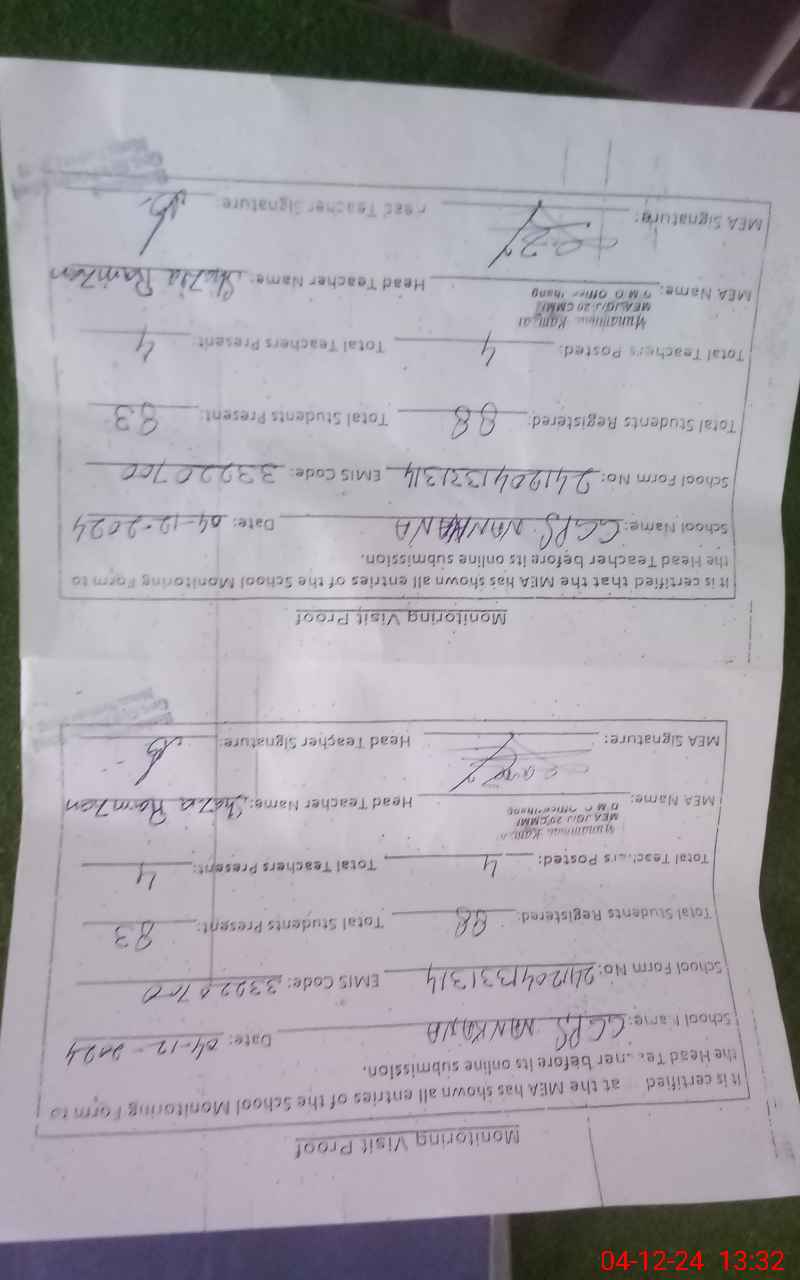 Monitoring Visit Proof
It is certified at the MEA has shown all entries of the School Monitoring Form to
the Head Tea ner before its online submission.
School Name: GGPS NANKANA Date: 04-12-2024
School Form No: 241204131314 EMIS Code: 33220700
Total Students Registered: 88 Total Students Present: 83
Total Teachers Posted: 4 Total Teachers Present: 4
MEA JG(J 20 CMM)
MEA Name: D M O Office Jhang Head Teacher Name: Shazia Ramzan
MEA Signature: Head Teacher Signature:
Monitoring Visit Proof
It is certified that the MEA has shown all entries of the School Monitoring Form to
the Head Teacher before its online submission.
School Name: GGPS NANKANA Date: 04-12-2024
School Form No: 241204131314 EMIS Code: 33220700
Total Students Registered: 88 Total Students Present: 83
Total Teachers Posted: 4 Total Teachers Present: 4
MEA JG(J 20 CMM)
MEA Name: D M O Office Jhang Head Teacher Name: Shazia Ramzan
MEA Signature: Head Teacher Signature
04-12-24 13:32